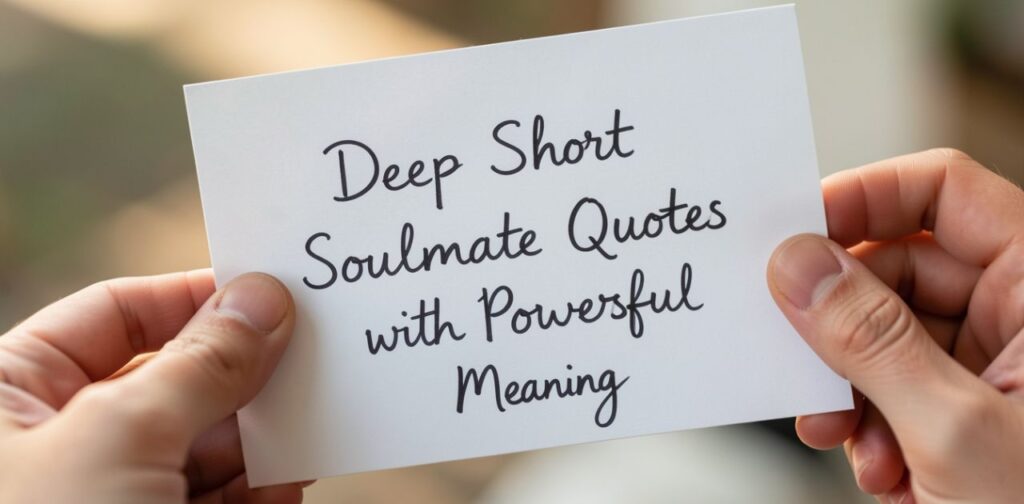 Deep Short
Soulmate Quotes
with Powesful
Meaning